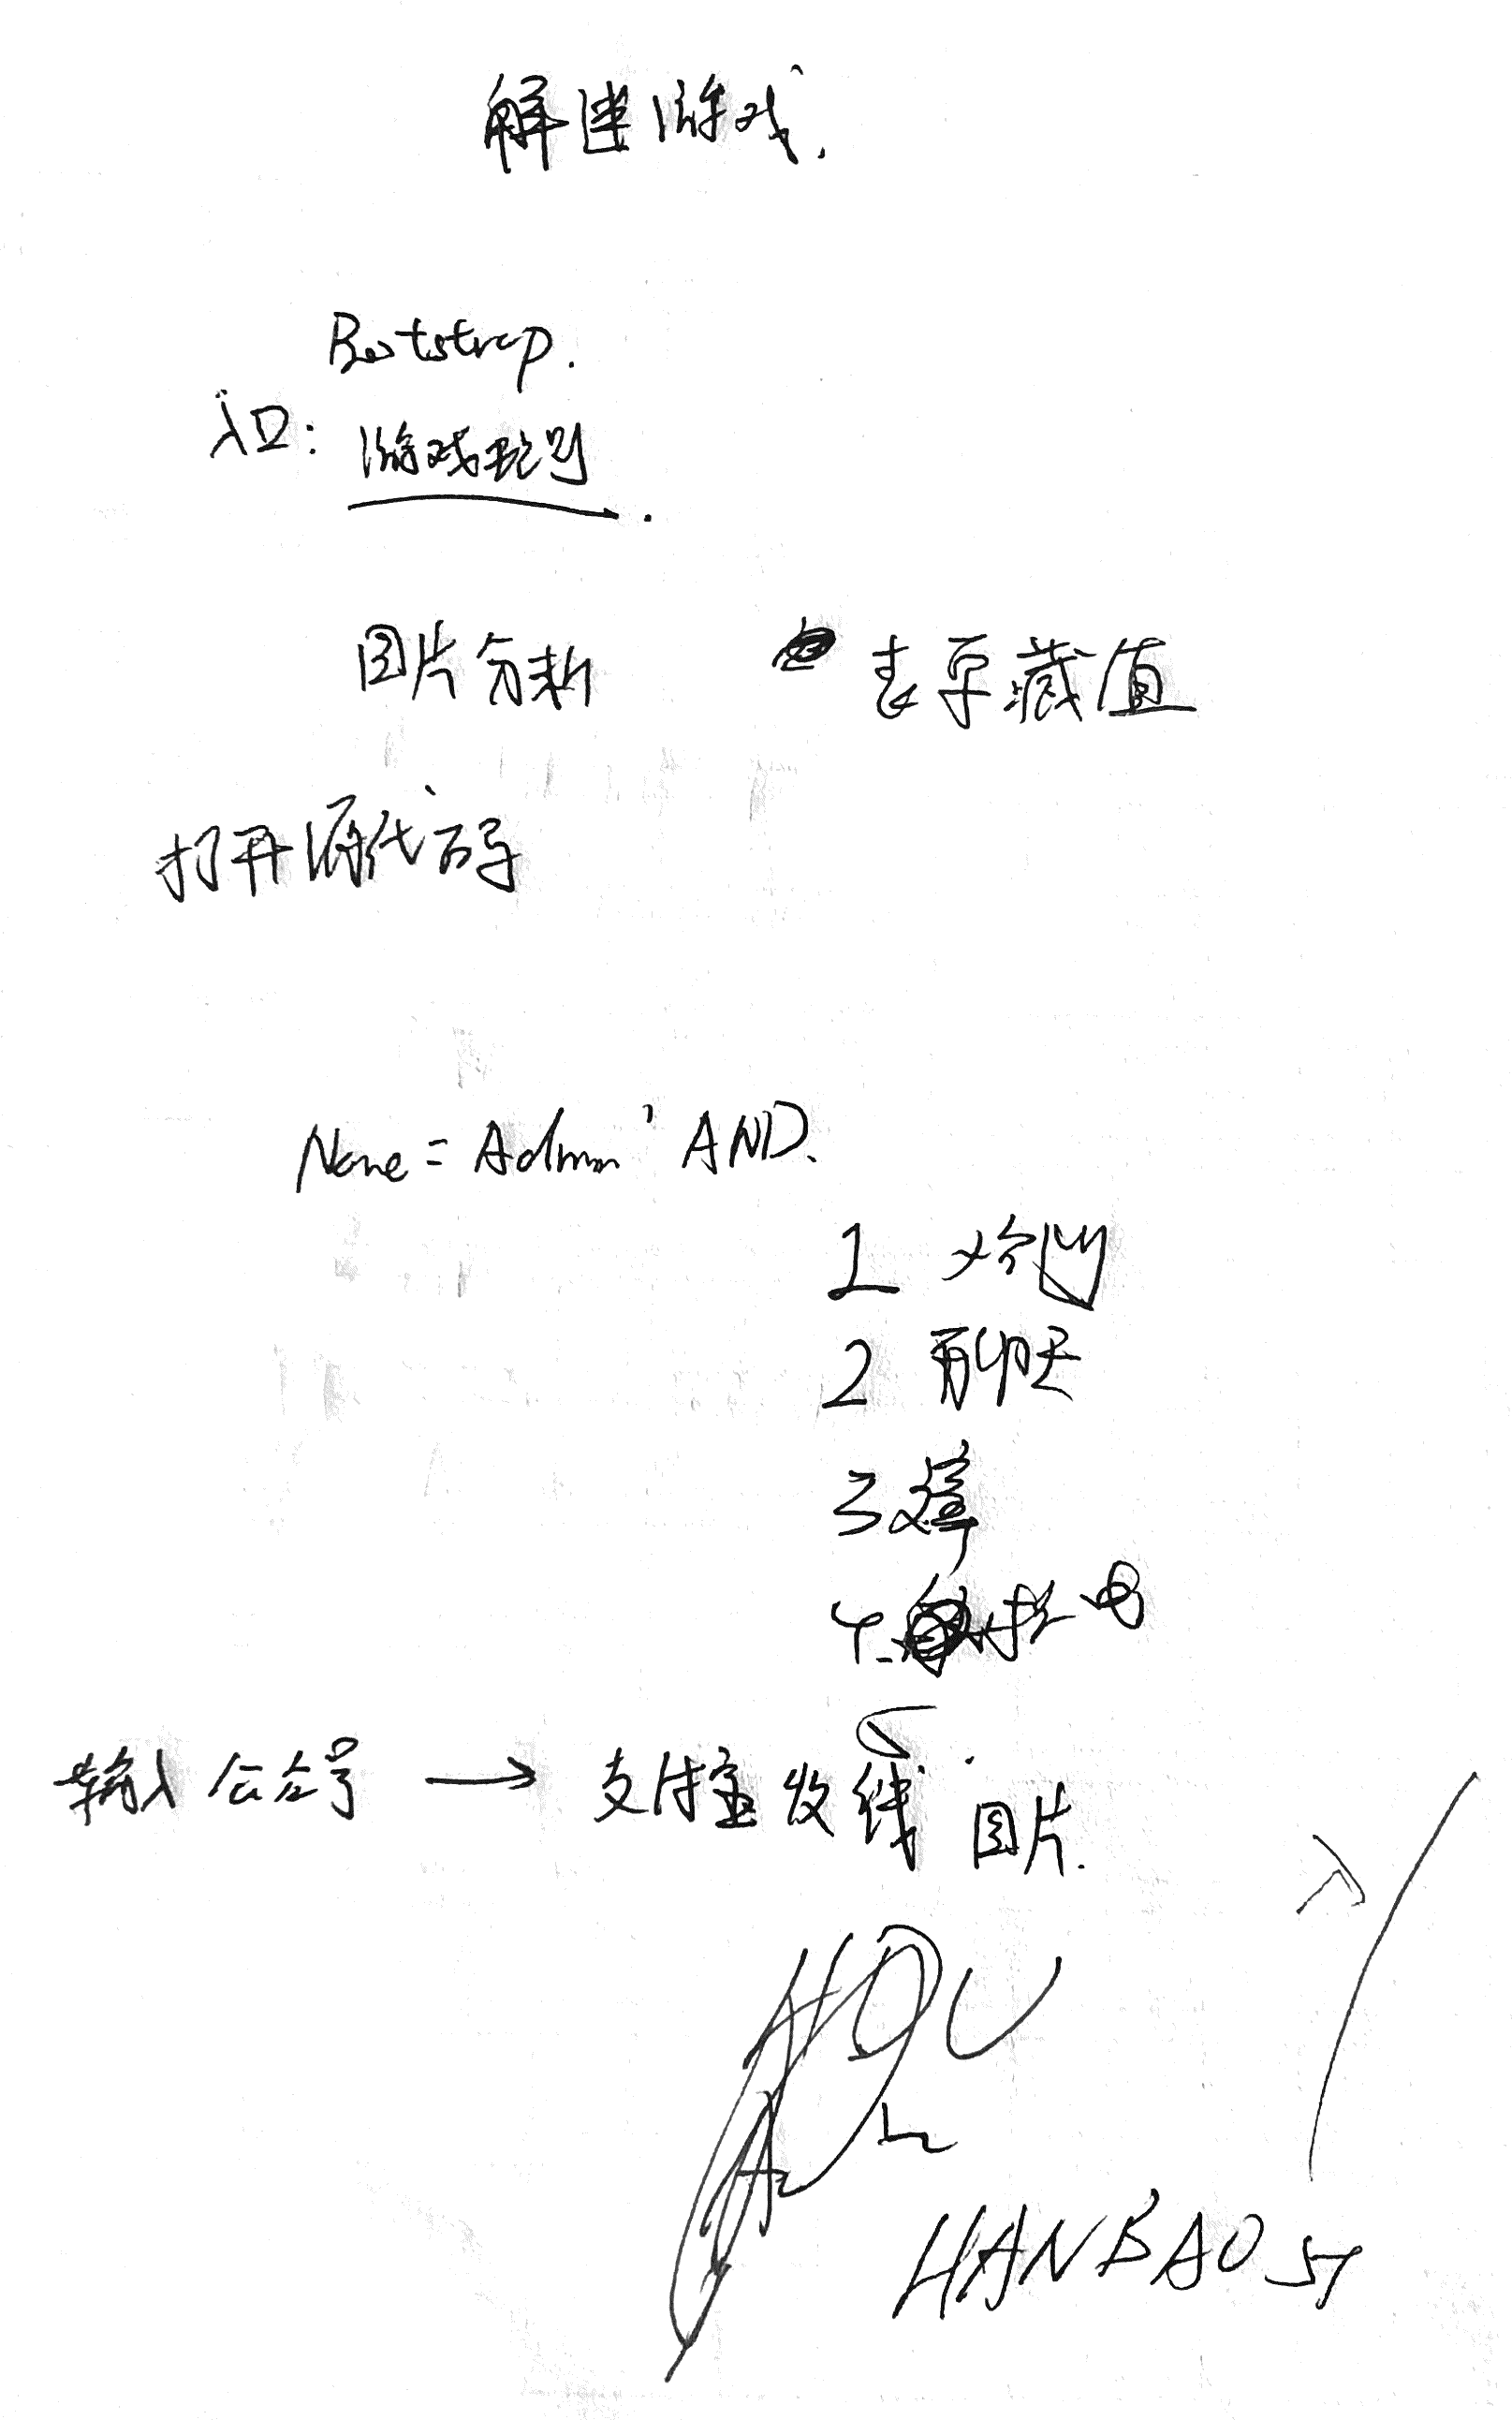 解迷游戏.
Bootstrap.
入口: 游戏规则.
图片分析
表单藏值
打开源代码
Name = Admin ' AND.
1
2 聊天
3
4
输入公众号 → 支付宝收钱 图片.
HANBAO